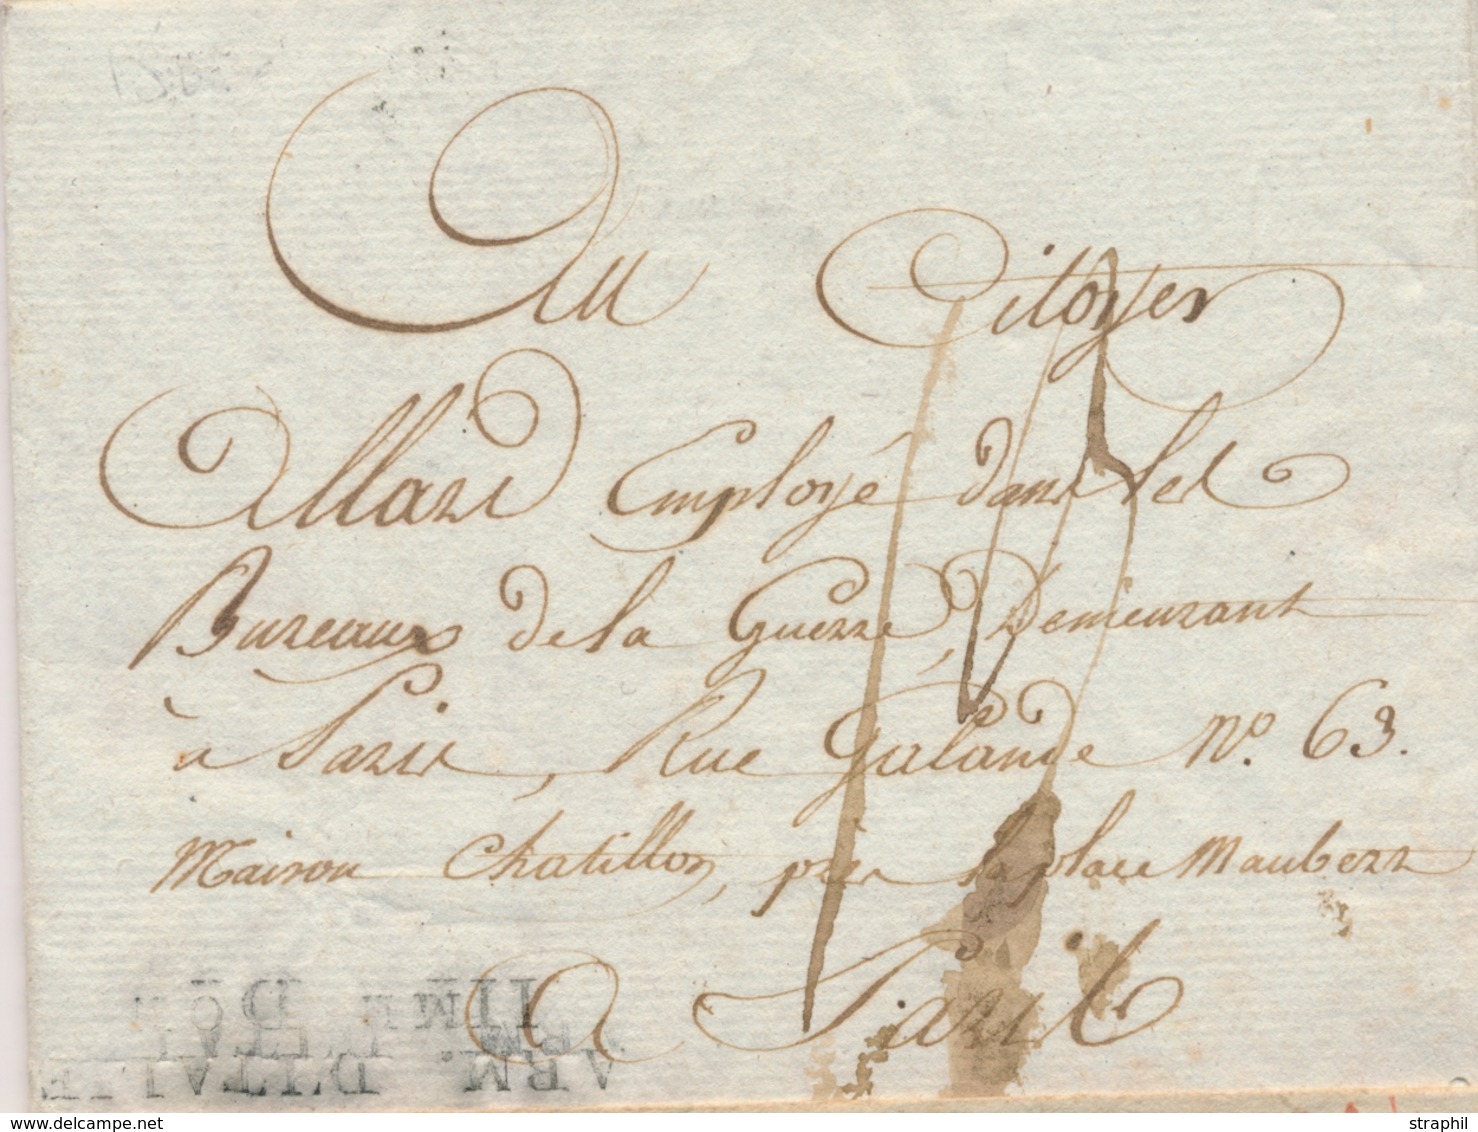 Au Citoyen
Allard Employé dans les
Bureaux de la Guerre, Demeurant
à Paris, Rue Galande No. 63.
Maison Chatillon, près la place Maubert
A Paris
IIME D
ARM. D'ITALIE
www.delcampe.net
straphil